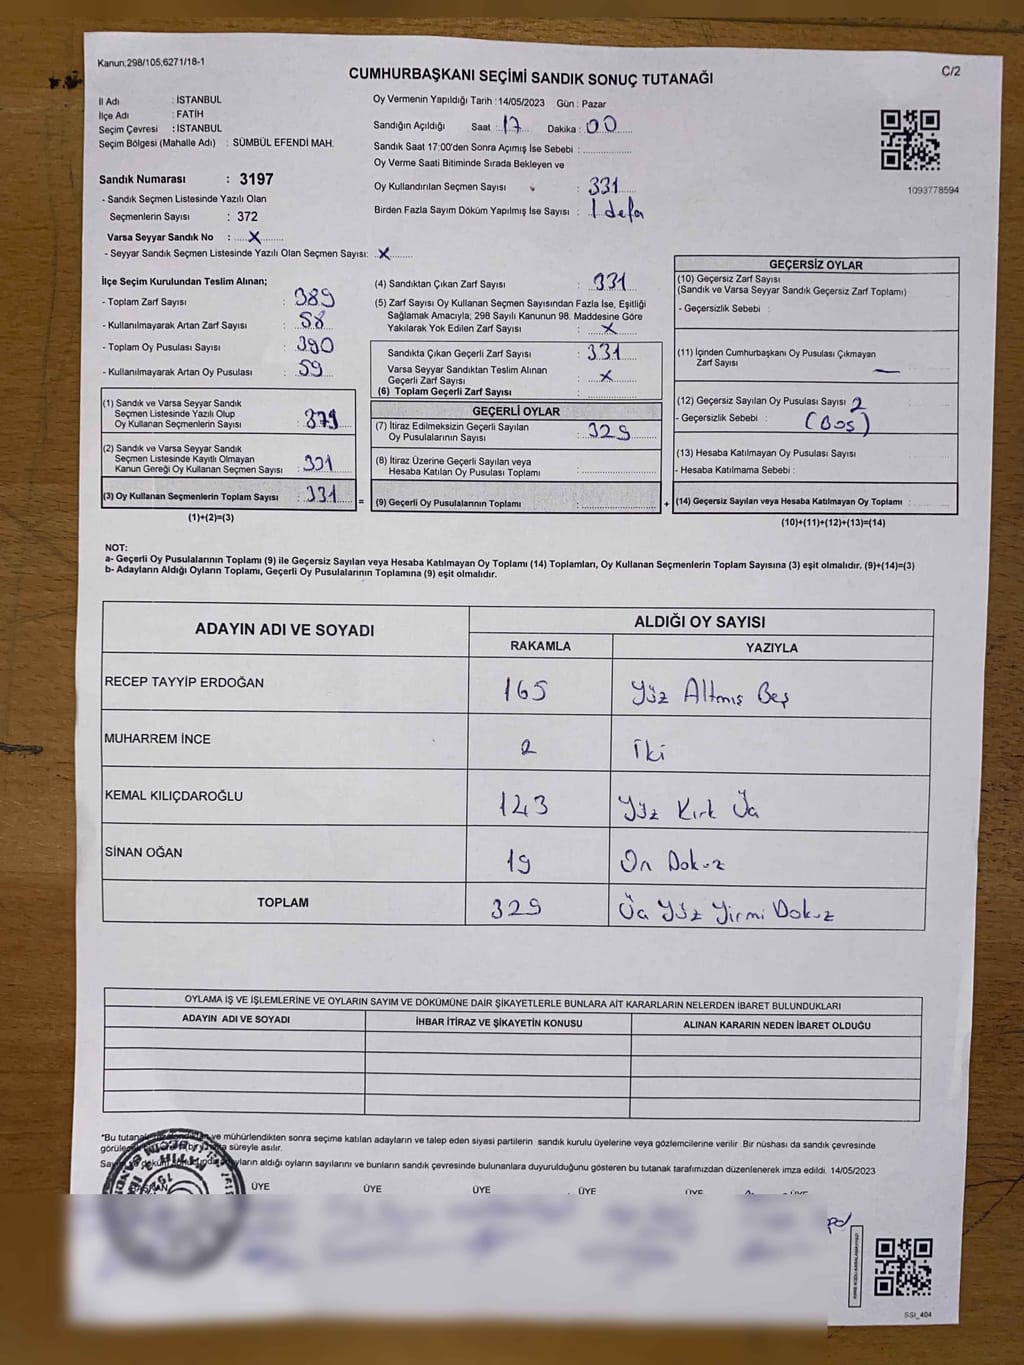 Kanun;298/105,6271/18-1
CUMHURBAŞKANI SEÇİMİ SANDIK SONUÇ TUTANAĞI
C/2
İl Adı : İSTANBUL
İlçe Adı : FATİH
Seçim Çevresi : İSTANBUL
Seçim Bölgesi (Mahalle Adı) : SÜMBÜL EFENDİ MAH.
Sandık Numarası : 3197
- Sandık Seçmen Listesinde Yazılı Olan
Seçmenlerin Sayısı : 372
Varsa Seyyar Sandık No : X
- Seyyar Sandık Seçmen Listesinde Yazılı Olan Seçmen Sayısı: X
Oy Vermenin Yapıldığı Tarih : 14/05/2023 Gün : Pazar
Sandığın Açıldığı Saat : 17 Dakika : 00
Sandık Saat 17:00'den Sonra Açımış İse Sebebi :
Oy Verme Saati Bitiminde Sırada Bekleyen ve
Oy Kullandırılan Seçmen Sayısı : 331
Birden Fazla Sayım Döküm Yapılmış İse Sayısı : 1 defa
1093778594
İlçe Seçim Kurulundan Teslim Alınan;
- Toplam Zarf Sayısı : 389
- Kullanılmayarak Artan Zarf Sayısı : 58
- Toplam Oy Pusulası Sayısı : 390
- Kullanılmayarak Artan Oy Pusulası : 59
(1) Sandık ve Varsa Seyyar Sandık
Seçmen Listesinde Yazılı Olup
Oy Kullanan Seçmenlerin Sayısı :
(2) Sandık ve Varsa Seyyar Sandık
Seçmen Listesinde Kayıtlı Olmayan
Kanun Gereği Oy Kullanan Seçmen Sayısı :
(3) Oy Kullanan Seçmenlerin Toplam Sayısı : 331
(1)+(2)=(3)
(4) Sandıktan Çıkan Zarf Sayısı : 331
(5) Zarf Sayısı Oy Kullanan Seçmen Sayısından Fazla İse, Eşitliği
Sağlamak Amacıyla; 298 Sayılı Kanunun 98. Maddesine Göre
Yakılarak Yok Edilen Zarf Sayısı : X
Sandıkta Çıkan Geçerli Zarf Sayısı : 331
Varsa Seyyar Sandıktan Teslim Alınan
Geçerli Zarf Sayısı : X
(6) Toplam Geçerli Zarf Sayısı :
GEÇERLİ OYLAR
(7) İtiraz Edilmeksizin Geçerli Sayılan
Oy Pusulalarının Sayısı : 329
(8) İtiraz Üzerine Geçerli Sayılan veya
Hesaba Katılan Oy Pusulası Toplamı :
= (9) Geçerli Oy Pusulalarının Toplamı :
GEÇERSİZ OYLAR
(10) Geçersiz Zarf Sayısı
(Sandık ve Varsa Seyyar Sandık Geçersiz Zarf Toplamı) :
- Geçersizlik Sebebi :
(11) İçinden Cumhurbaşkanı Oy Pusulası Çıkmayan
Zarf Sayısı : —
(12) Geçersiz Sayılan Oy Pusulası Sayısı : 2
- Geçersizlik Sebebi : (Boş)
(13) Hesaba Katılmayan Oy Pusulası Sayısı :
- Hesaba Katılmama Sebebi :
+ (14) Geçersiz Sayılan veya Hesaba Katılmayan Oy Toplamı :
(10)+(11)+(12)+(13)=(14)
NOT:
a- Geçerli Oy Pusulalarının Toplamı (9) ile Geçersiz Sayılan veya Hesaba Katılmayan Oy Toplamı (14) Toplamları, Oy Kullanan Seçmenlerin Toplam Sayısına (3) eşit olmalıdır. (9)+(14)=(3)
b- Adayların Aldığı Oyların Toplamı, Geçerli Oy Pusulalarının Toplamına (9) eşit olmalıdır.
ADAYIN ADI VE SOYADI
ALDIĞI OY SAYISI
RAKAMLA YAZIYLA
RECEP TAYYİP ERDOĞAN 165 Yüz Altmış Beş
MUHARREM İNCE 2 İki
KEMAL KILIÇDAROĞLU 143 Yüz Kırk Üç
SİNAN OĞAN 19 On Dokuz
TOPLAM 329 Üç Yüz Yirmi Dokuz
OYLAMA İŞ VE İŞLEMLERİNE VE OYLARIN SAYIM VE DÖKÜMÜNE DAİR ŞİKAYETLERLE BUNLARA AİT KARARLARIN NELERDEN İBARET BULUNDUKLARI
ADAYIN ADI VE SOYADI İHBAR İTİRAZ VE ŞİKAYETİN KONUSU ALINAN KARARIN NEDEN İBARET OLDUĞU
*Bu tutanak ve mühürlendikten sonra seçime katılan adayların ve talep eden siyasi partilerin sandık kurulu üyelerine veya gözlemcilerine verilir Bir nüshası da sandık çevresinde
süreyle asılır.
aldığı oyların sayılarını ve bunların sandık çevresinde bulunanlara duyurulduğunu gösteren bu tutanak tarafımızdan düzenlenerek imza edildi. 14/05/2023
BAŞKAN ÜYE ÜYE ÜYE ÜYE ÜYE ÜYE
SSI_404